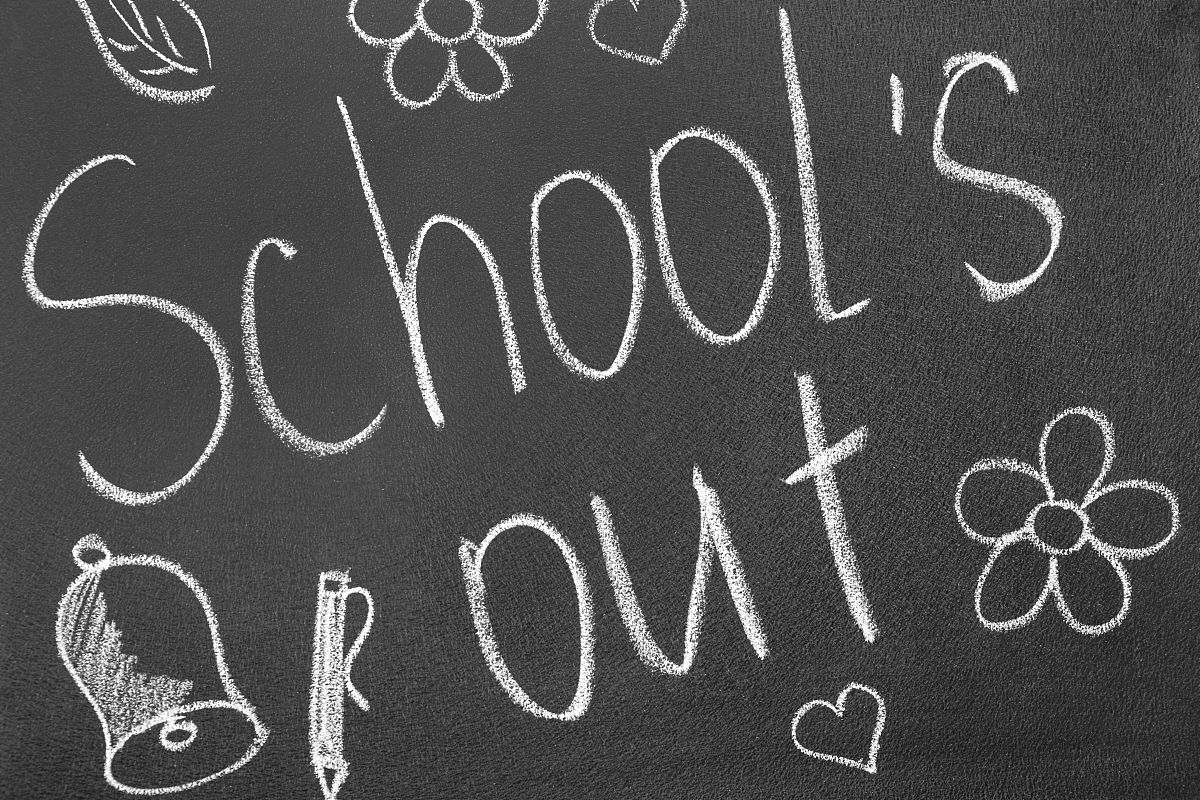 School's
out